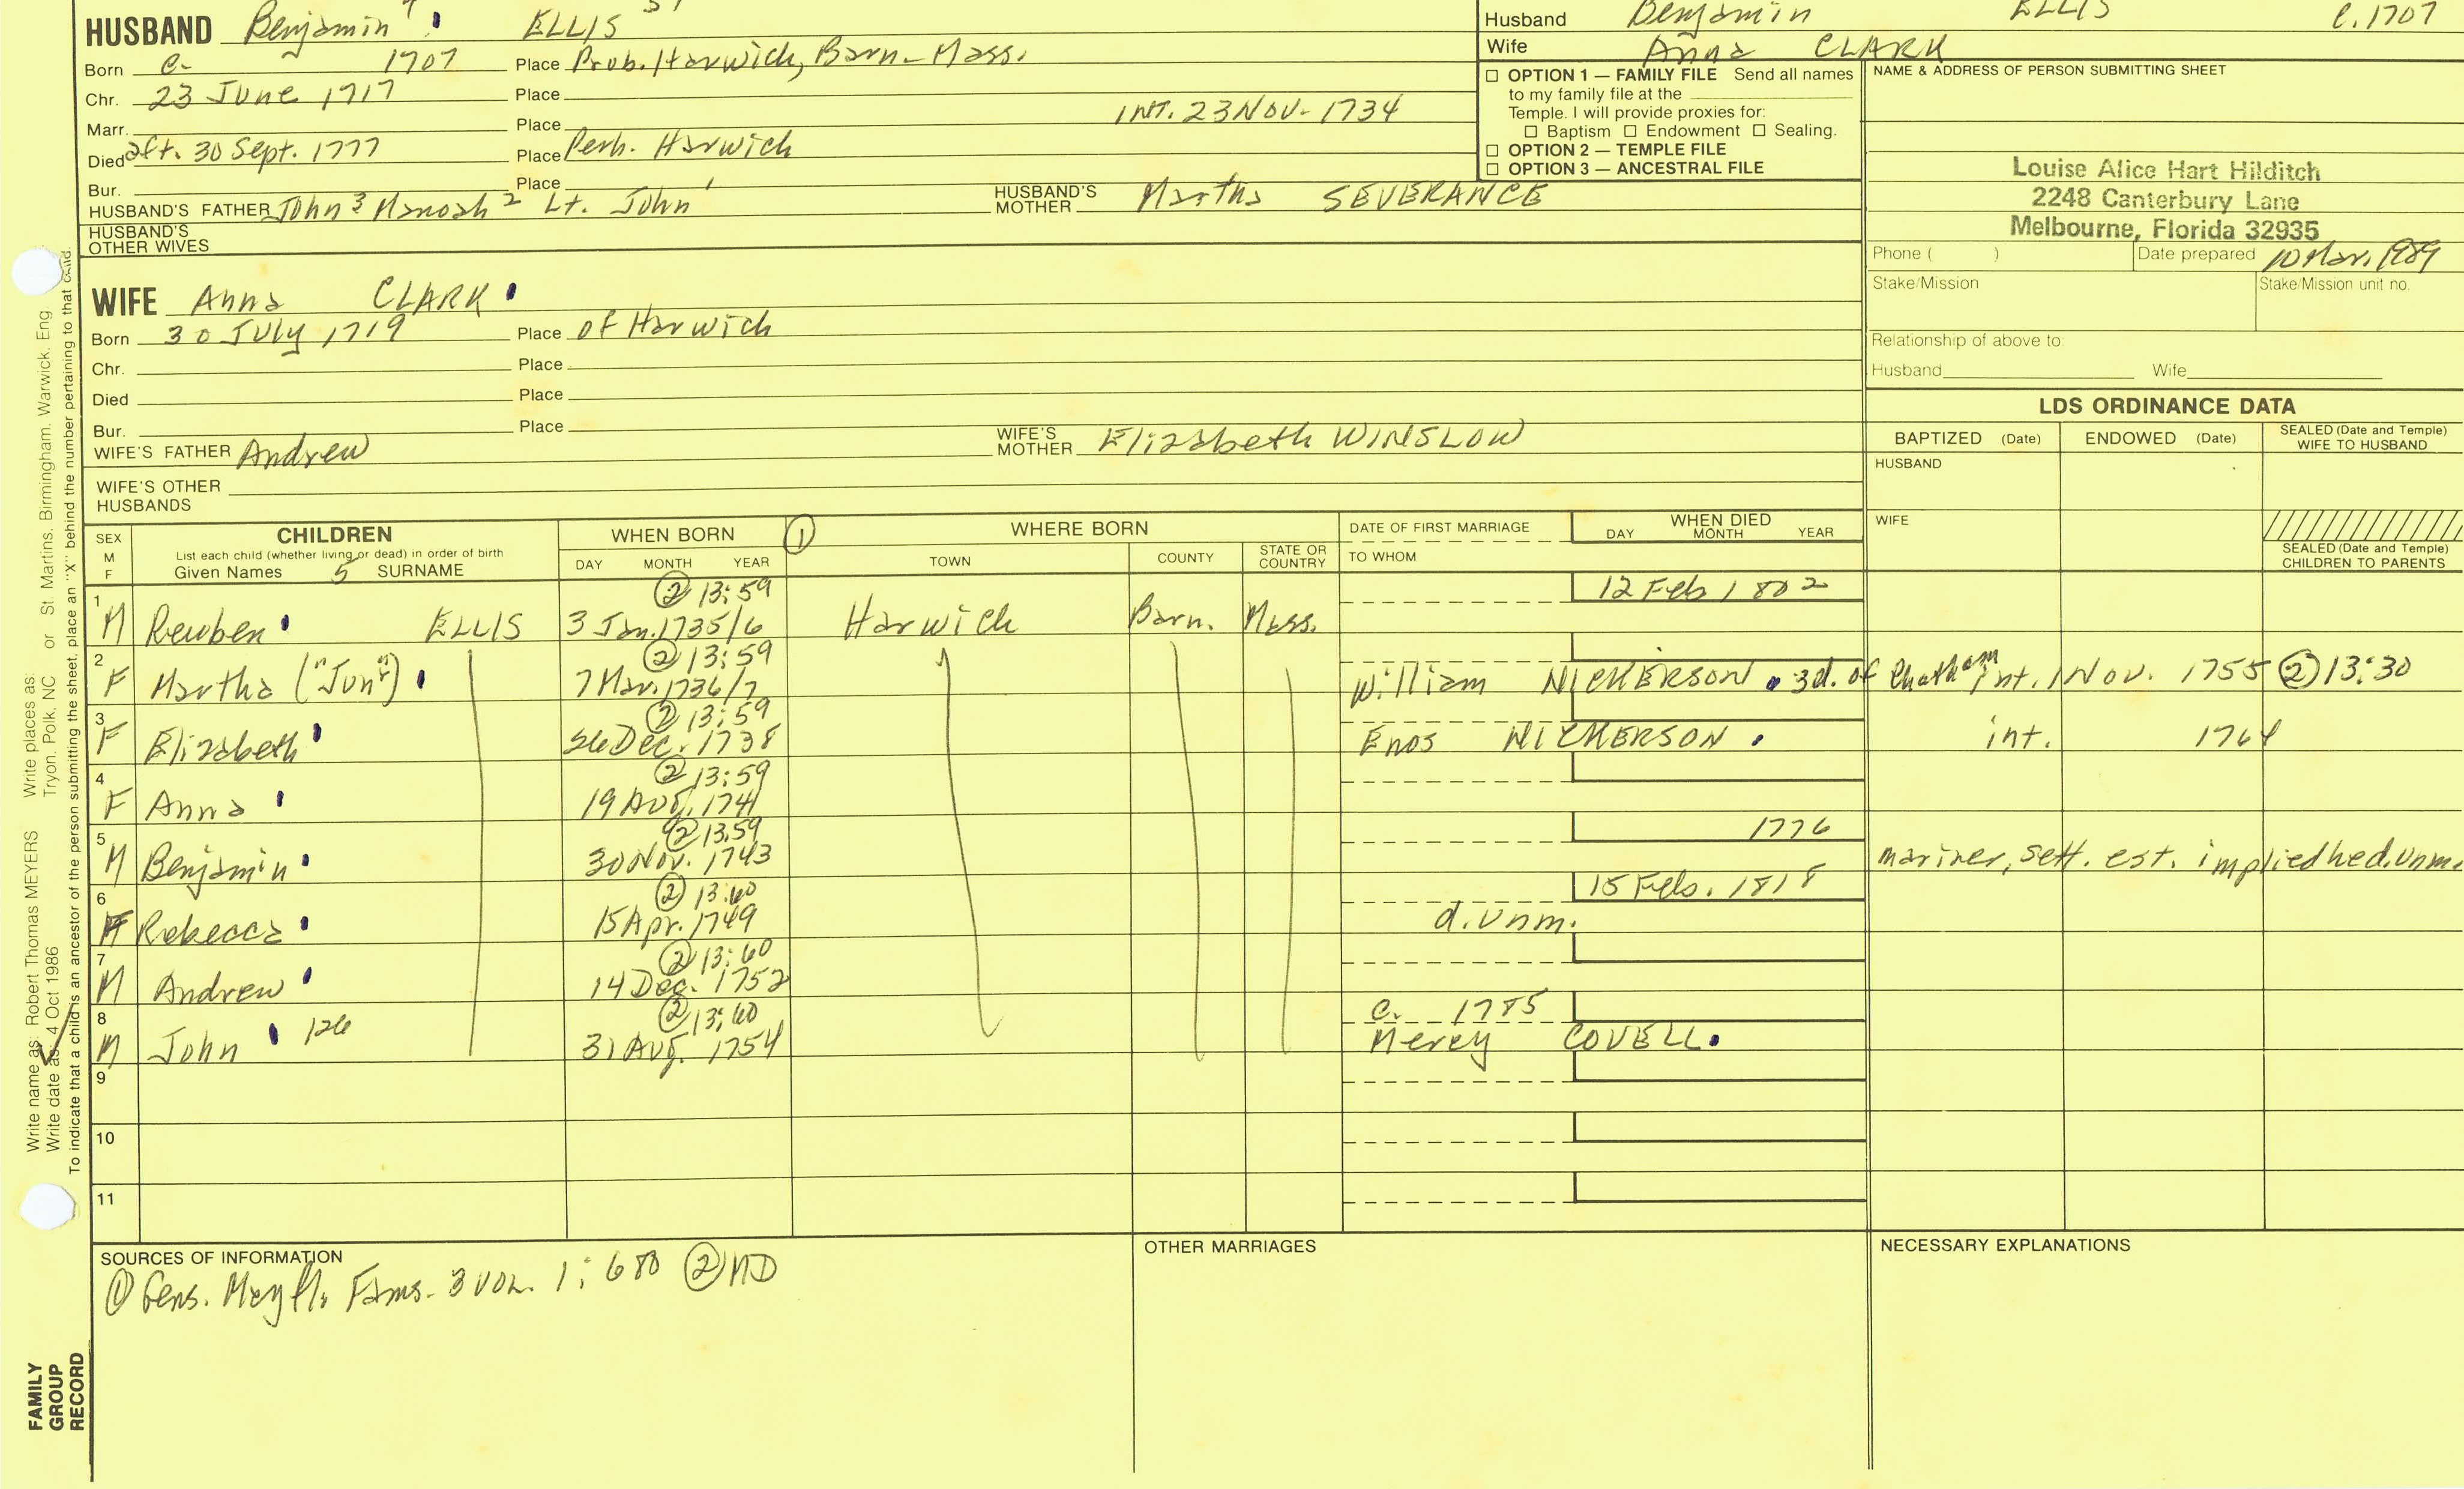 HUSBAND Benjamin 4 ELLIS
Born c. 1707 Place Prob. Harwich, Barn. Mass.
Chr. 23 June 1717 Place
Marr. Place INT. 23 NOV. 1734
Died aft. 30 Sept. 1777 Place Perh. Harwich
Bur. Place
HUSBAND'S FATHER John 3 Manoah 2 Lt. John 1 HUSBAND'S MOTHER Martha SEVERANCE
HUSBAND'S OTHER WIVES
Husband Benjamin ELLIS c. 1707
Wife Anna CLARK
☐ OPTION 1 — FAMILY FILE Send all names
to my family file at the
Temple. I will provide proxies for:
☐ Baptism ☐ Endowment ☐ Sealing.
☐ OPTION 2 — TEMPLE FILE
☐ OPTION 3 — ANCESTRAL FILE
NAME & ADDRESS OF PERSON SUBMITTING SHEET
Louise Alice Hart Hilditch
2248 Canterbury Lane
Melbourne, Florida 32935
Phone ( ) Date prepared 10 Mar. 1989
Stake/Mission Stake/Mission unit no.
Relationship of above to:
Husband Wife
WIFE Anna CLARK
Born 30 July 1719 Place of Harwich
Chr. Place
Died Place
Bur. Place
WIFE'S FATHER Andrew WIFE'S MOTHER Elizabeth WINSLOW
WIFE'S OTHER
HUSBANDS
LDS ORDINANCE DATA
BAPTIZED (Date) ENDOWED (Date) SEALED (Date and Temple) WIFE TO HUSBAND
HUSBAND
WIFE
SEALED (Date and Temple)
CHILDREN TO PARENTS
SEX M F
CHILDREN
List each child (whether living or dead) in order of birth
Given Names 5 SURNAME
WHEN BORN ① WHERE BORN
DAY MONTH YEAR TOWN COUNTY STATE OR COUNTRY
DATE OF FIRST MARRIAGE
TO WHOM
WHEN DIED
DAY MONTH YEAR
② 13:59 12 Feb 1802
1 M Reuben ELLIS 3 Jan. 1735/6 Harwich Barn. Mass.
② 13:59
2 F Martha ("Junr") 7 Mar. 1736/7 William NICKERSON 3d. of Chatham int. 1 Nov. 1755 ② 13:30
② 13:59
3 F Elizabeth 26 Dec. 1738 Enos NICKERSON int. 1764
② 13:59
4 F Anna 19 Aug. 1741
② 13:59 1776
5 M Benjamin 30 Nov. 1743 mariner, sett. est. implied he d. unm.
② 13:60 15 Feb. 1818
6 F Rebecca 15 Apr. 1749 d. unm.
② 13:60
7 M Andrew 14 Dec. 1752
② 13:60 c. 1785
8 M John 126 31 Aug. 1754 Mercy COVELL
9
10
11
SOURCES OF INFORMATION
① Gens. Mayfl. Fams. 3 vol. 1: 680 ② MD
OTHER MARRIAGES
NECESSARY EXPLANATIONS
Write name as: Robert Thomas MEYERS Write places as: Tryon, Polk, NC or St. Martins, Birmingham, Warwick, Eng
Write date as: 4 Oct 1986
To indicate that a child is an ancestor of the person submitting the sheet, place an "X" behind the number pertaining to that child.
FAMILY
GROUP
RECORD